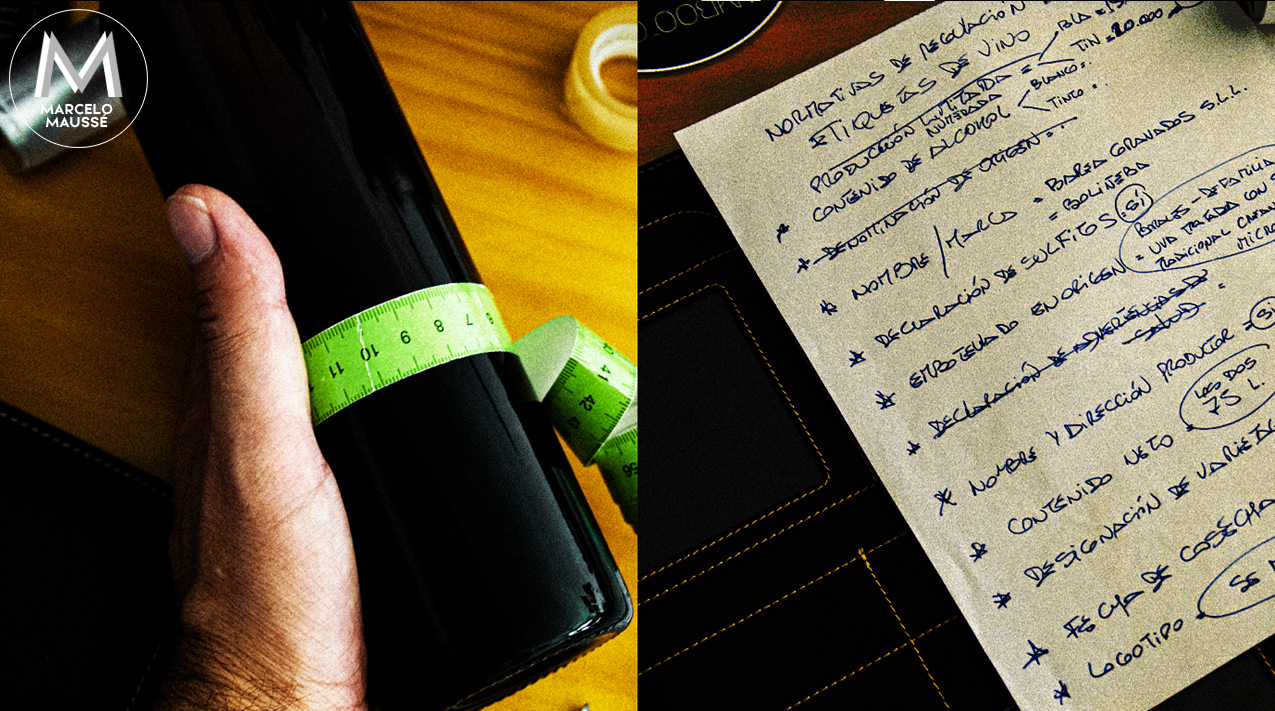 MARCELO
MAUSSÉ
11 10 9 8 7 6
41
42
NORMATIVAS DE REGULACIÓN
ETIQUETAS DE VINO
PRODUCCIÓN LIMITADA =
NUMERADA
TIN = 20.000
CONTENIDO DE ALCOHOL
BLANCO = .
TINTO = .
* DENOMINACIÓN DE ORIGEN = .
* NOMBRE / MARCA = BAREA GRANADOS S.L.L.
= BOLIÑERA
* DECLARACIÓN DE SULFITOS SÍ
* EMBOTELLADO EN ORIGEN =
- DE FAMILIA
UVA TRATADA CON
TRADICIONAL
* DECLARACIÓN DE ADVERTENCIAS DE
SALUD =
* NOMBRE Y DIRECCIÓN PRODUCTOR = SÍ
* CONTENIDO NETO = LAS DOS
75 L.
* DESIGNACIÓN DE
* FECHA DE COSECHA
* LOGOTIPO = SE